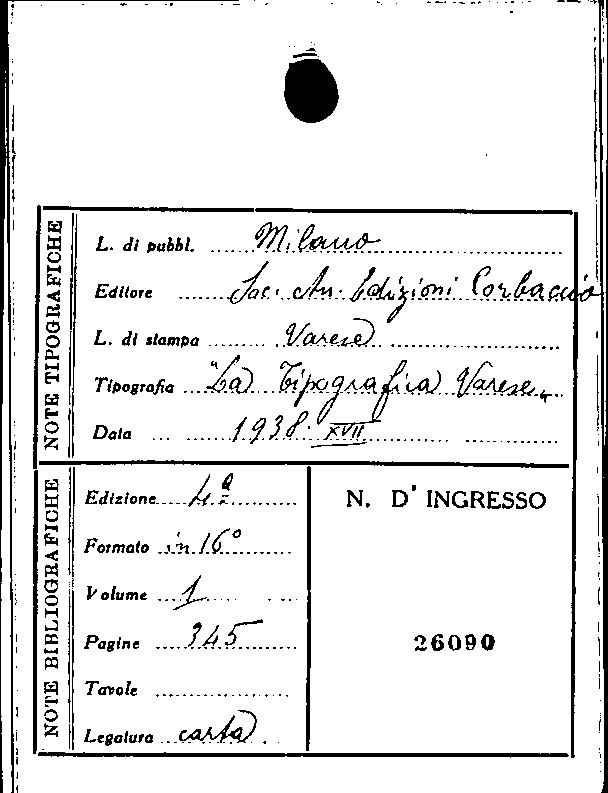 NOTE TIPOGRAFICHE
L. di pubbl. Milano
Editore Soc. An. Edizioni Corbaccio
L. di stampa Varese
Tipografia "La Tipografica Varese"
Data 1938 XVII
NOTE BIBLIOGRAFICHE
Edizione 4ª
Formato in 16°
Volume 1
Pagine 345
Tavole
Legatura carta
N. D'INGRESSO
26090